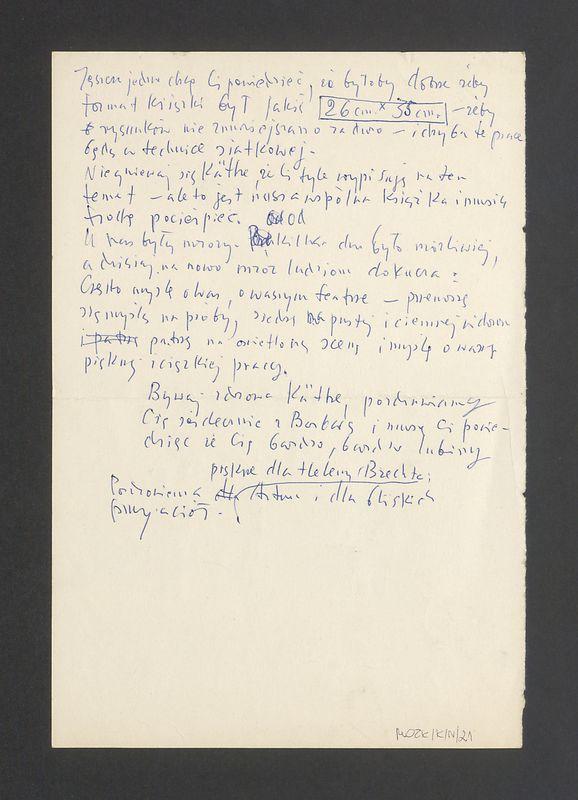 Jeszcze jedno chcę Ci powiedzieć, że byłoby dobrze żeby
format książki był jakiś 26 cm. x 35 cm. – żeby
rysunków nie zmniejszano za dużo – i chyba te prace
będą w technice siatkowej.
Nie gniewaj się Käthe, że Ci tyle wypisuję na ten
temat – ale to jest nasza wspólna książka i musisz
trochę pocierpieć. od
U nas były mrozy. kilka dni było możliwiej,
a dzisiaj na nowo mróz ludziom dokucza.
Często myślę o was, o waszym teatrze – przenoszę
się myślą na próby, siedzę na pustej i ciemnej widowni
i patrzę patrzę na oświetloną scenę i myślę o waszej
pięknej i ciężkiej pracy.
Bywaj zdrowa Käthe, pozdrawiamy
Cię serdecznie z Barbarą i muszę Ci powie-
dzieć że Cię bardzo, bardzo lubimy
piękne dla Heleny Brechta;
Pozdrowienia dla Artura i dla bliskich
przyjaciół.
MOZK/K/IV/21